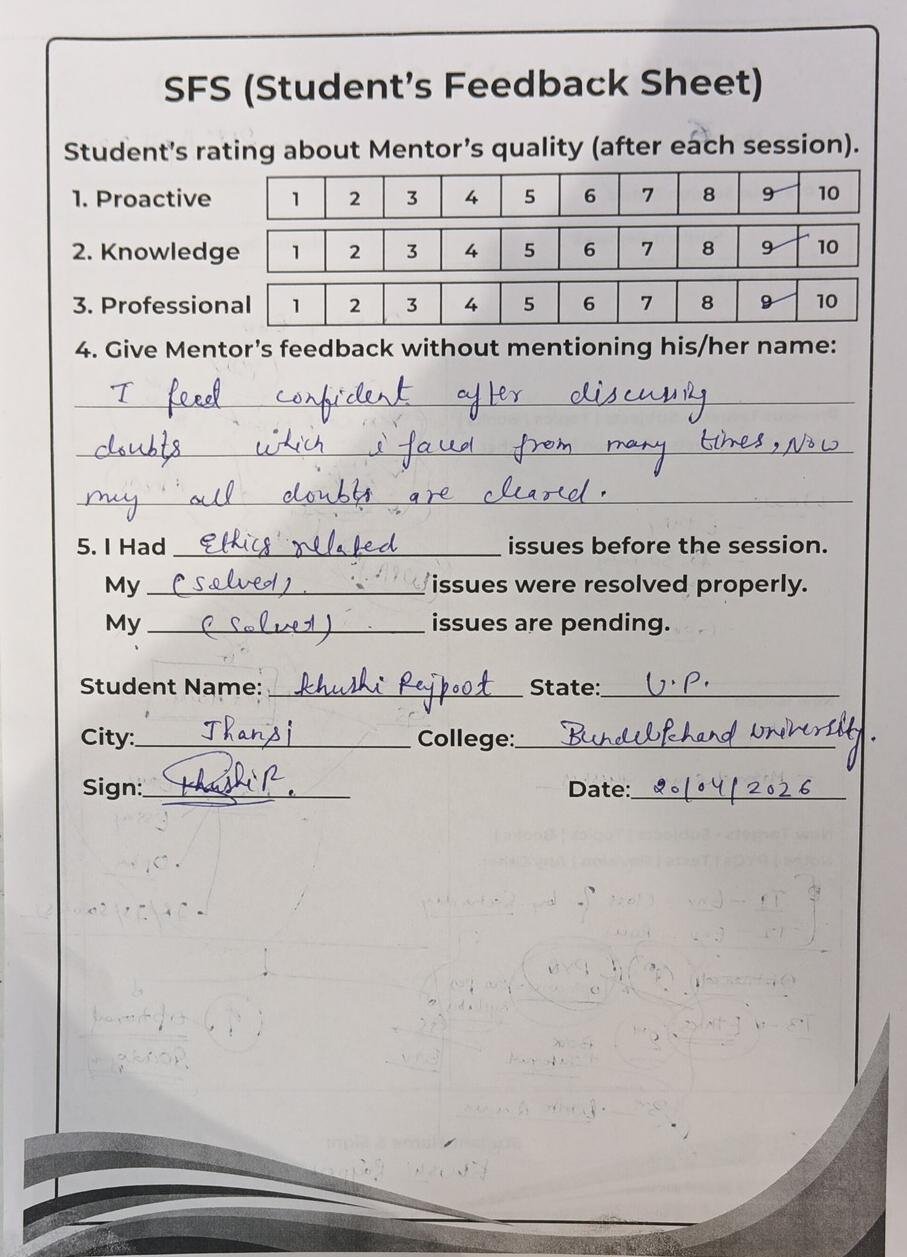 SFS (Student's Feedback Sheet)
Student's rating about Mentor's quality (after each session).
1. Proactive 1 2 3 4 5 6 7 8 9 10
2. Knowledge 1 2 3 4 5 6 7 8 9 10
3. Professional 1 2 3 4 5 6 7 8 9 10
4. Give Mentor's feedback without mentioning his/her name:
I feel confident after discussing
doubts which i faced from many times, Now
my all doubts are cleared.
5. I Had Ethics related issues before the session.
My (solved). issues were resolved properly.
My (solved) issues are pending.
Student Name: Khushi Rajpoot State: U.P.
City: Jhansi College: Bundelkhand University.
Sign: Khushi R. Date: 20/04/2026